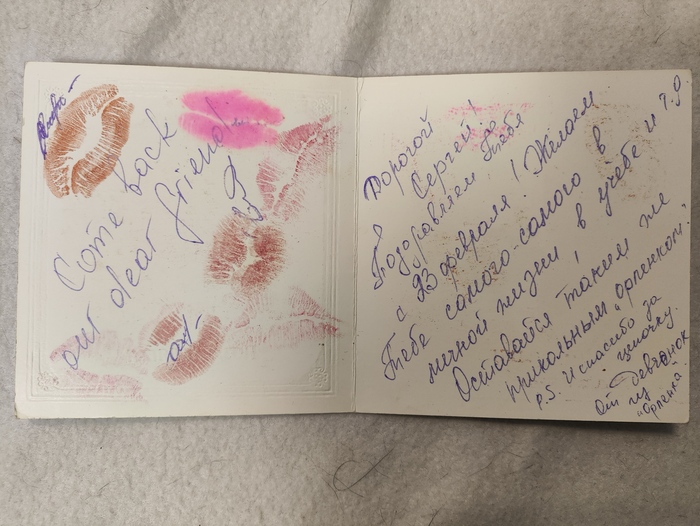 Come back
our dear friend!
Дорогой
Сергей!
Поздравляем Тебя
с 23 февраля! Желаем
Тебе самого-самого в
личной жизни, в учебе и т.д.
Оставайся таким же
прикольным „орленком".
P.S. И спасибо за
цепочку.
От девчонок
из
"Орленка"